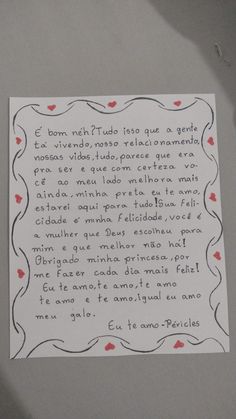 É bom néh? Tudo isso que a gente
tá vivendo, nosso relacionamento,
nossas vidas, tudo, parece que era
pra ser e que com certeza vo-
cê ao meu lado melhora mais
ainda, minha preta eu te amo,
estarei aqui para tudo! Sua feli-
cidade é minha felicidade, você é
a mulher que Deus escolheu para
mim e que melhor não há!
Obrigado minha princesa, por
me fazer cada dia mais feliz!
Eu te amo, te amo, te amo
te amo e te amo, igual eu amo
meu galo.
Eu te amo - Péricles